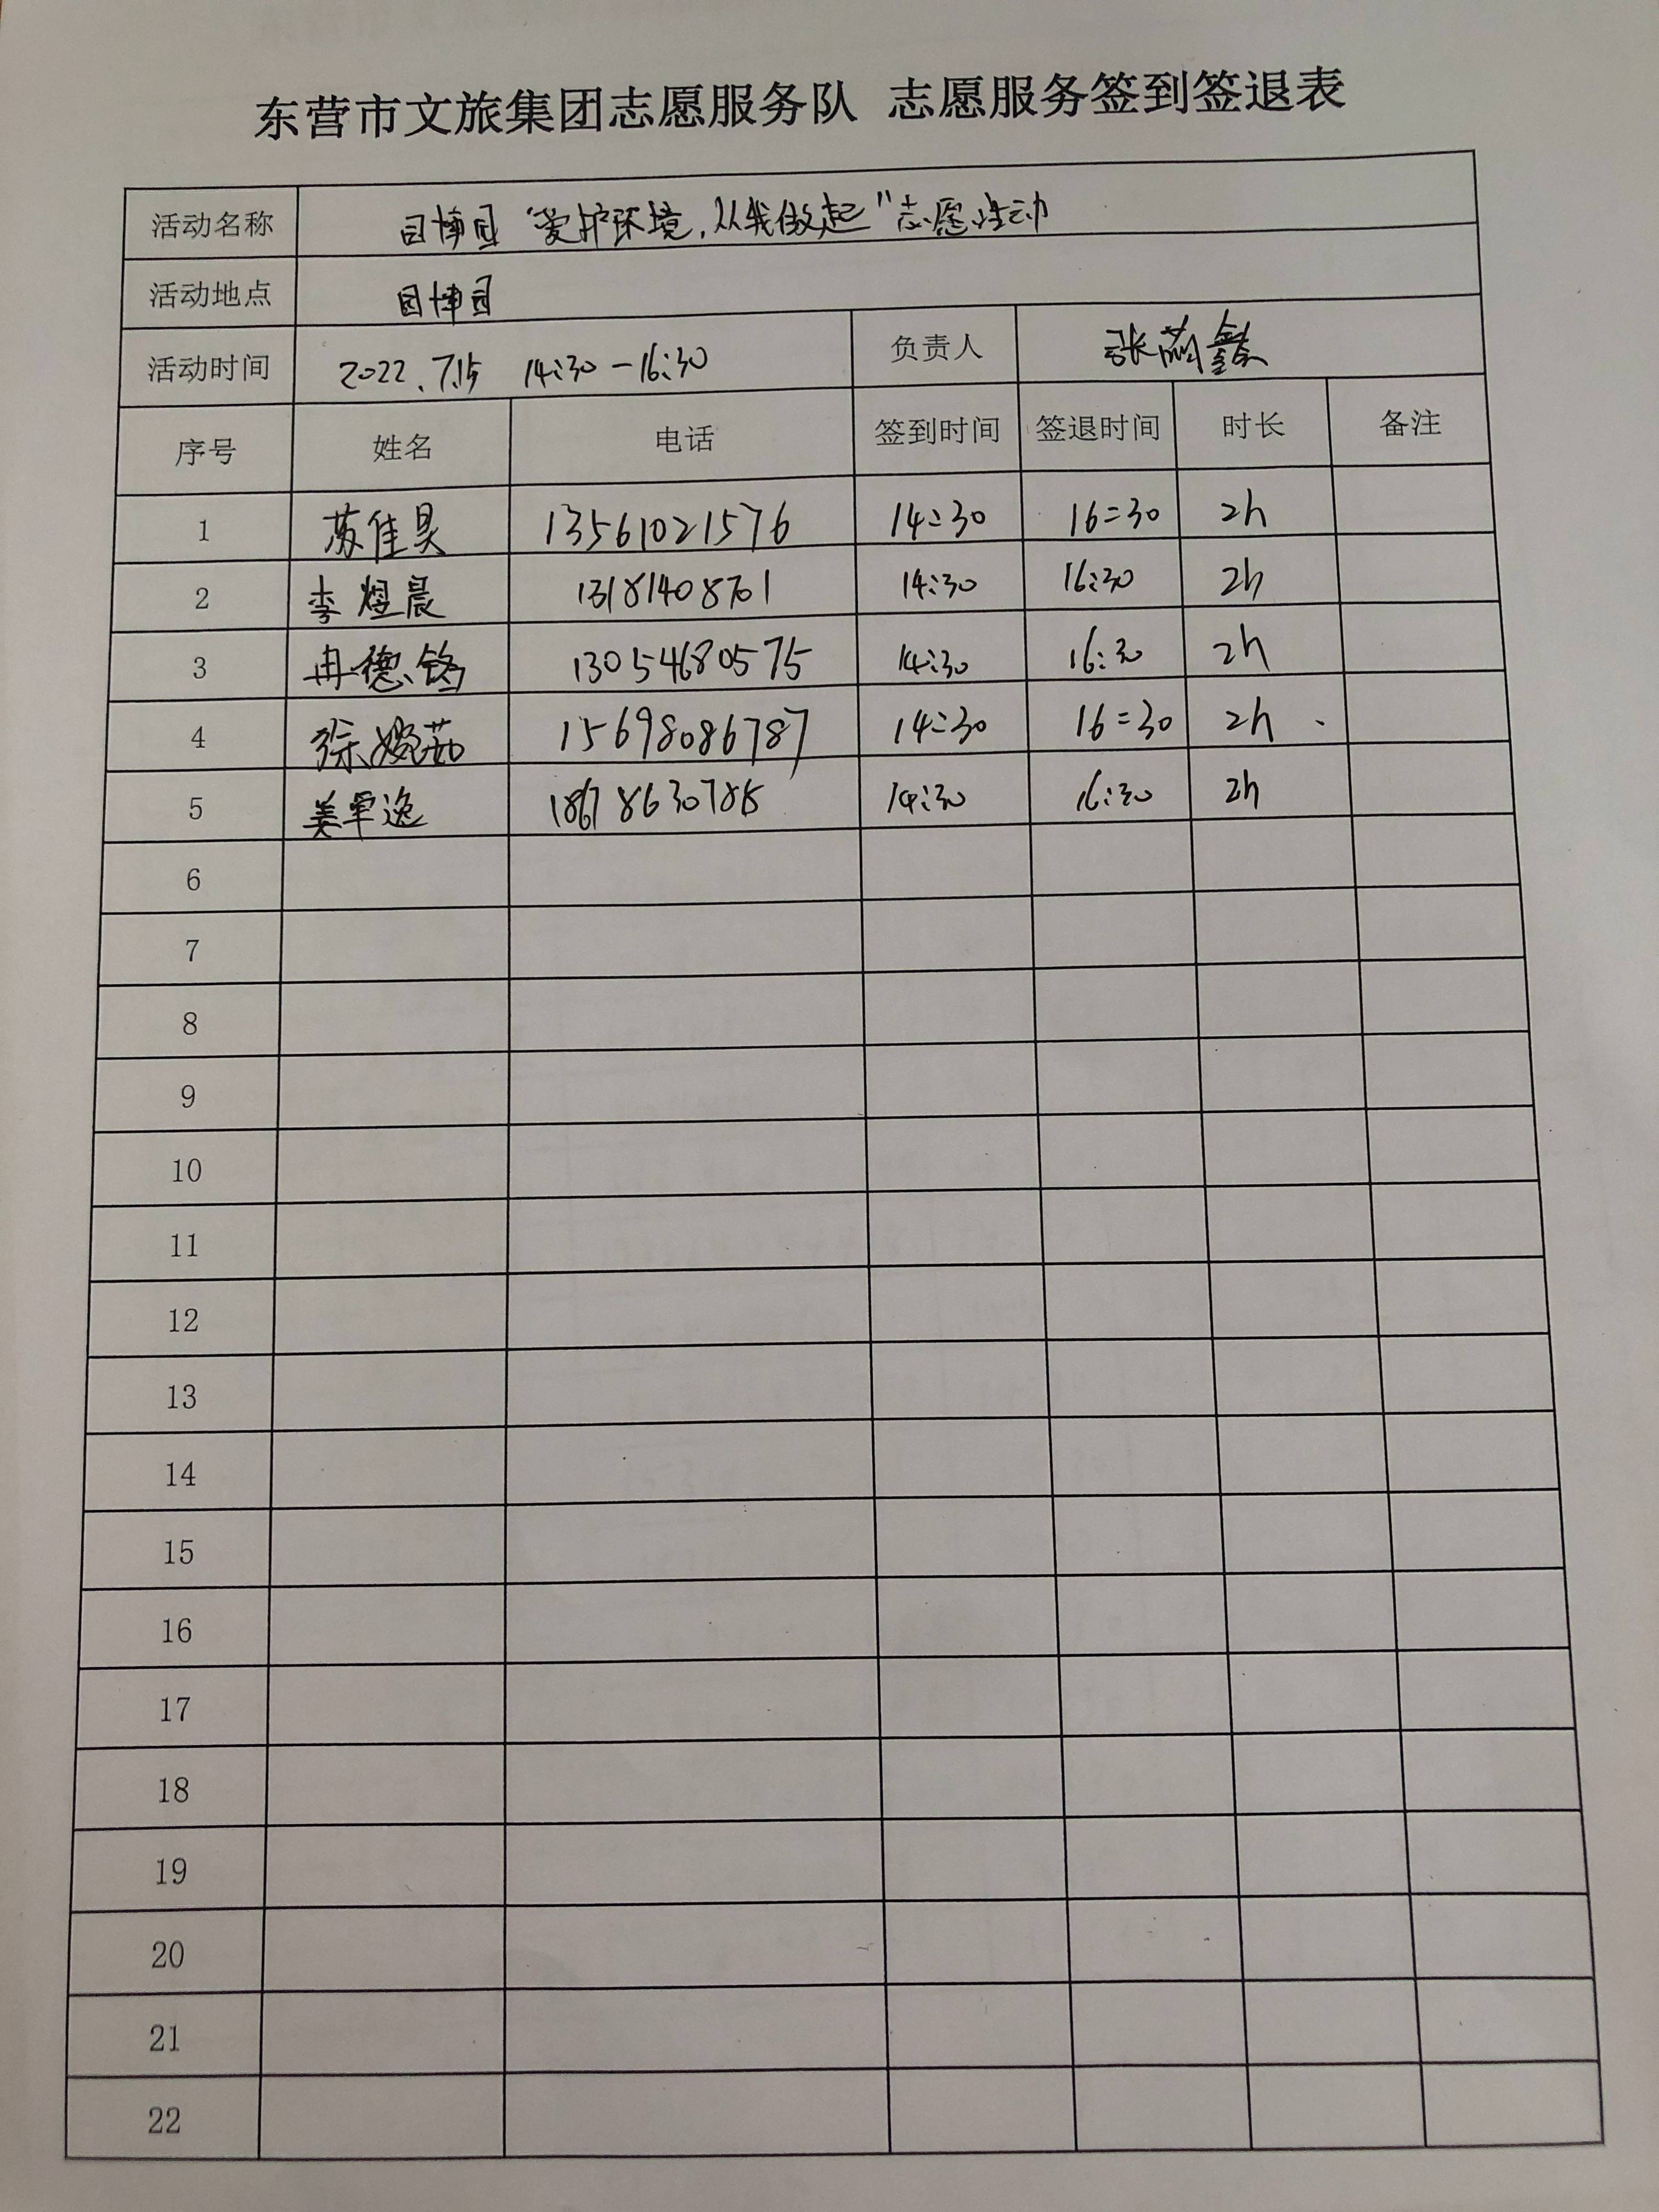 东营市文旅集团志愿服务队 志愿服务签到签退表
活动名称 园博园“爱护环境，从我做起”志愿活动
活动地点 园博园
活动时间 2022.7.15 14:30-16:30 负责人 张萌鑫
序号 姓名 电话 签到时间 签退时间 时长 备注
1 苏佳昊 13561021576 14:30 16:30 2h
2 李煜晨 13181408701 14:30 16:30 2h
3 冉德铭 13054680575 14:30 16:30 2h
4 徐婉茹 15698086787 14:30 16:30 2h
5 姜军逸 14:30 16:30 2h
6
7
8
9
10
11
12
13
14
15
16
17
18
19
20
21
22